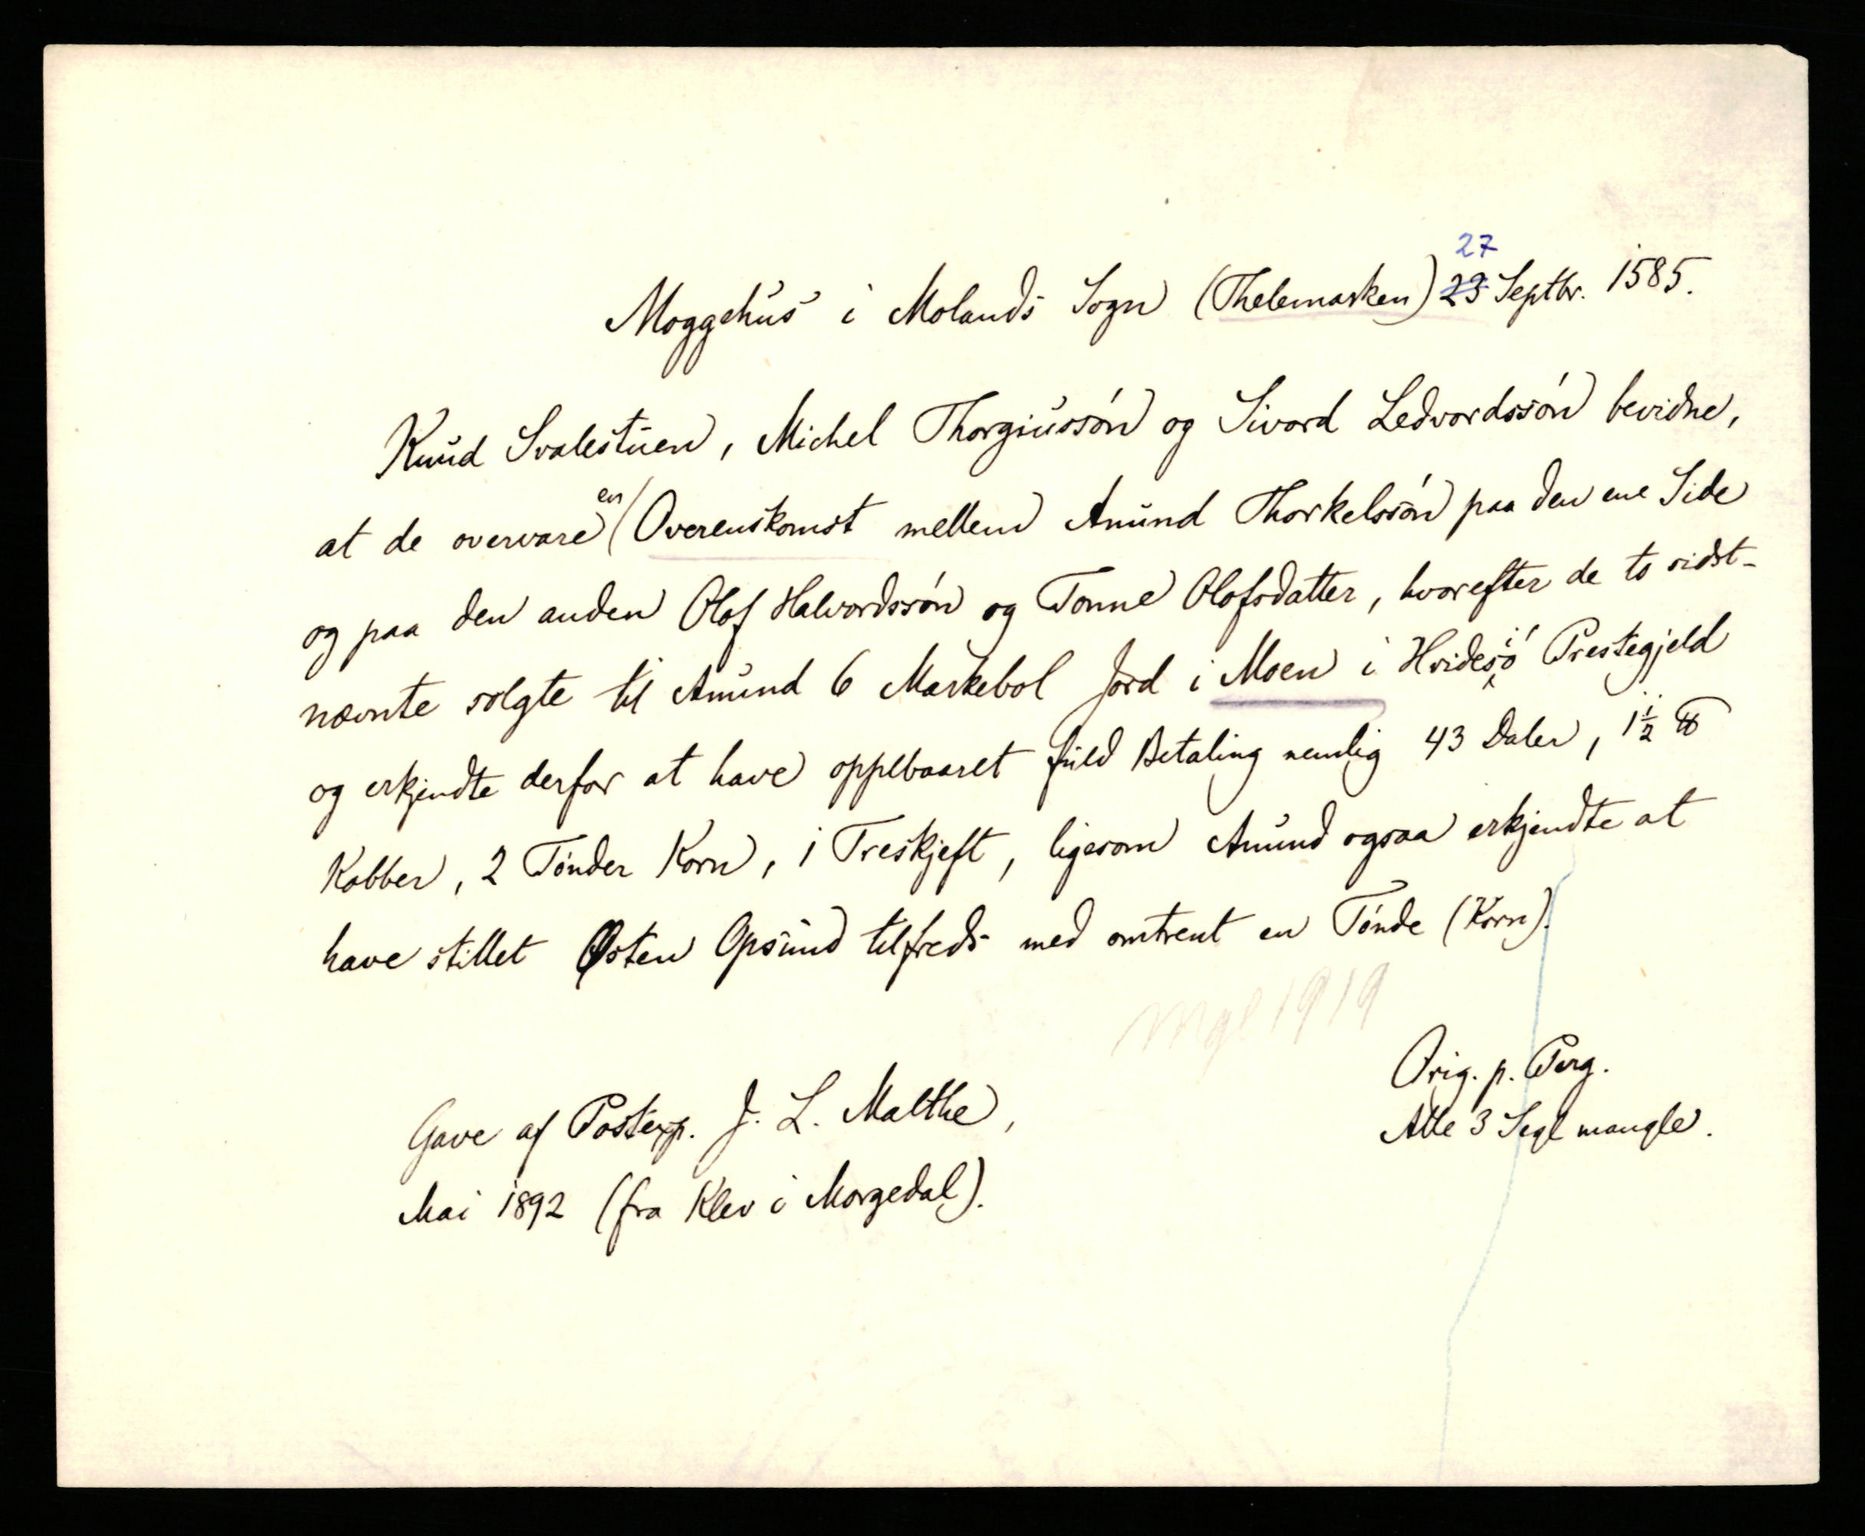 Moggehus i Molands Sogn (Thelemarken) 27 23 Septbr. 1585.
Knud Svalestuen, Michel Thorgiussøn og Sivord Ledvordssøn bevidne,
at de overvare en Overenskomst mellem Anund Thorkelssøn paa den ene Side
og paa den anden Olof Halvordssøn og Tonne Olofsdatter, hvorefter de to sidst-
nævnte solgte til Anund 6 Markebol Jord i Moen i Hvidesiø Prestegjeld
og erkjendte derfor at have oppebaaret fuld Betaling nemlig 43 Daler, 1½ ℔
Kobber, 2 Tønder Korn, 1 Treskjeft, ligesom Anund ogsaa erkjendte at
have stillet Østen Opsund tilfreds med omtrent en Tønde (Korn).
Mgl 1919
Orig. p. Perg.
Alle 3 Segl mangle.
Gave af Postexp. J. L. Malthe,
Mai 1892 (fra Klev i Morgedal).